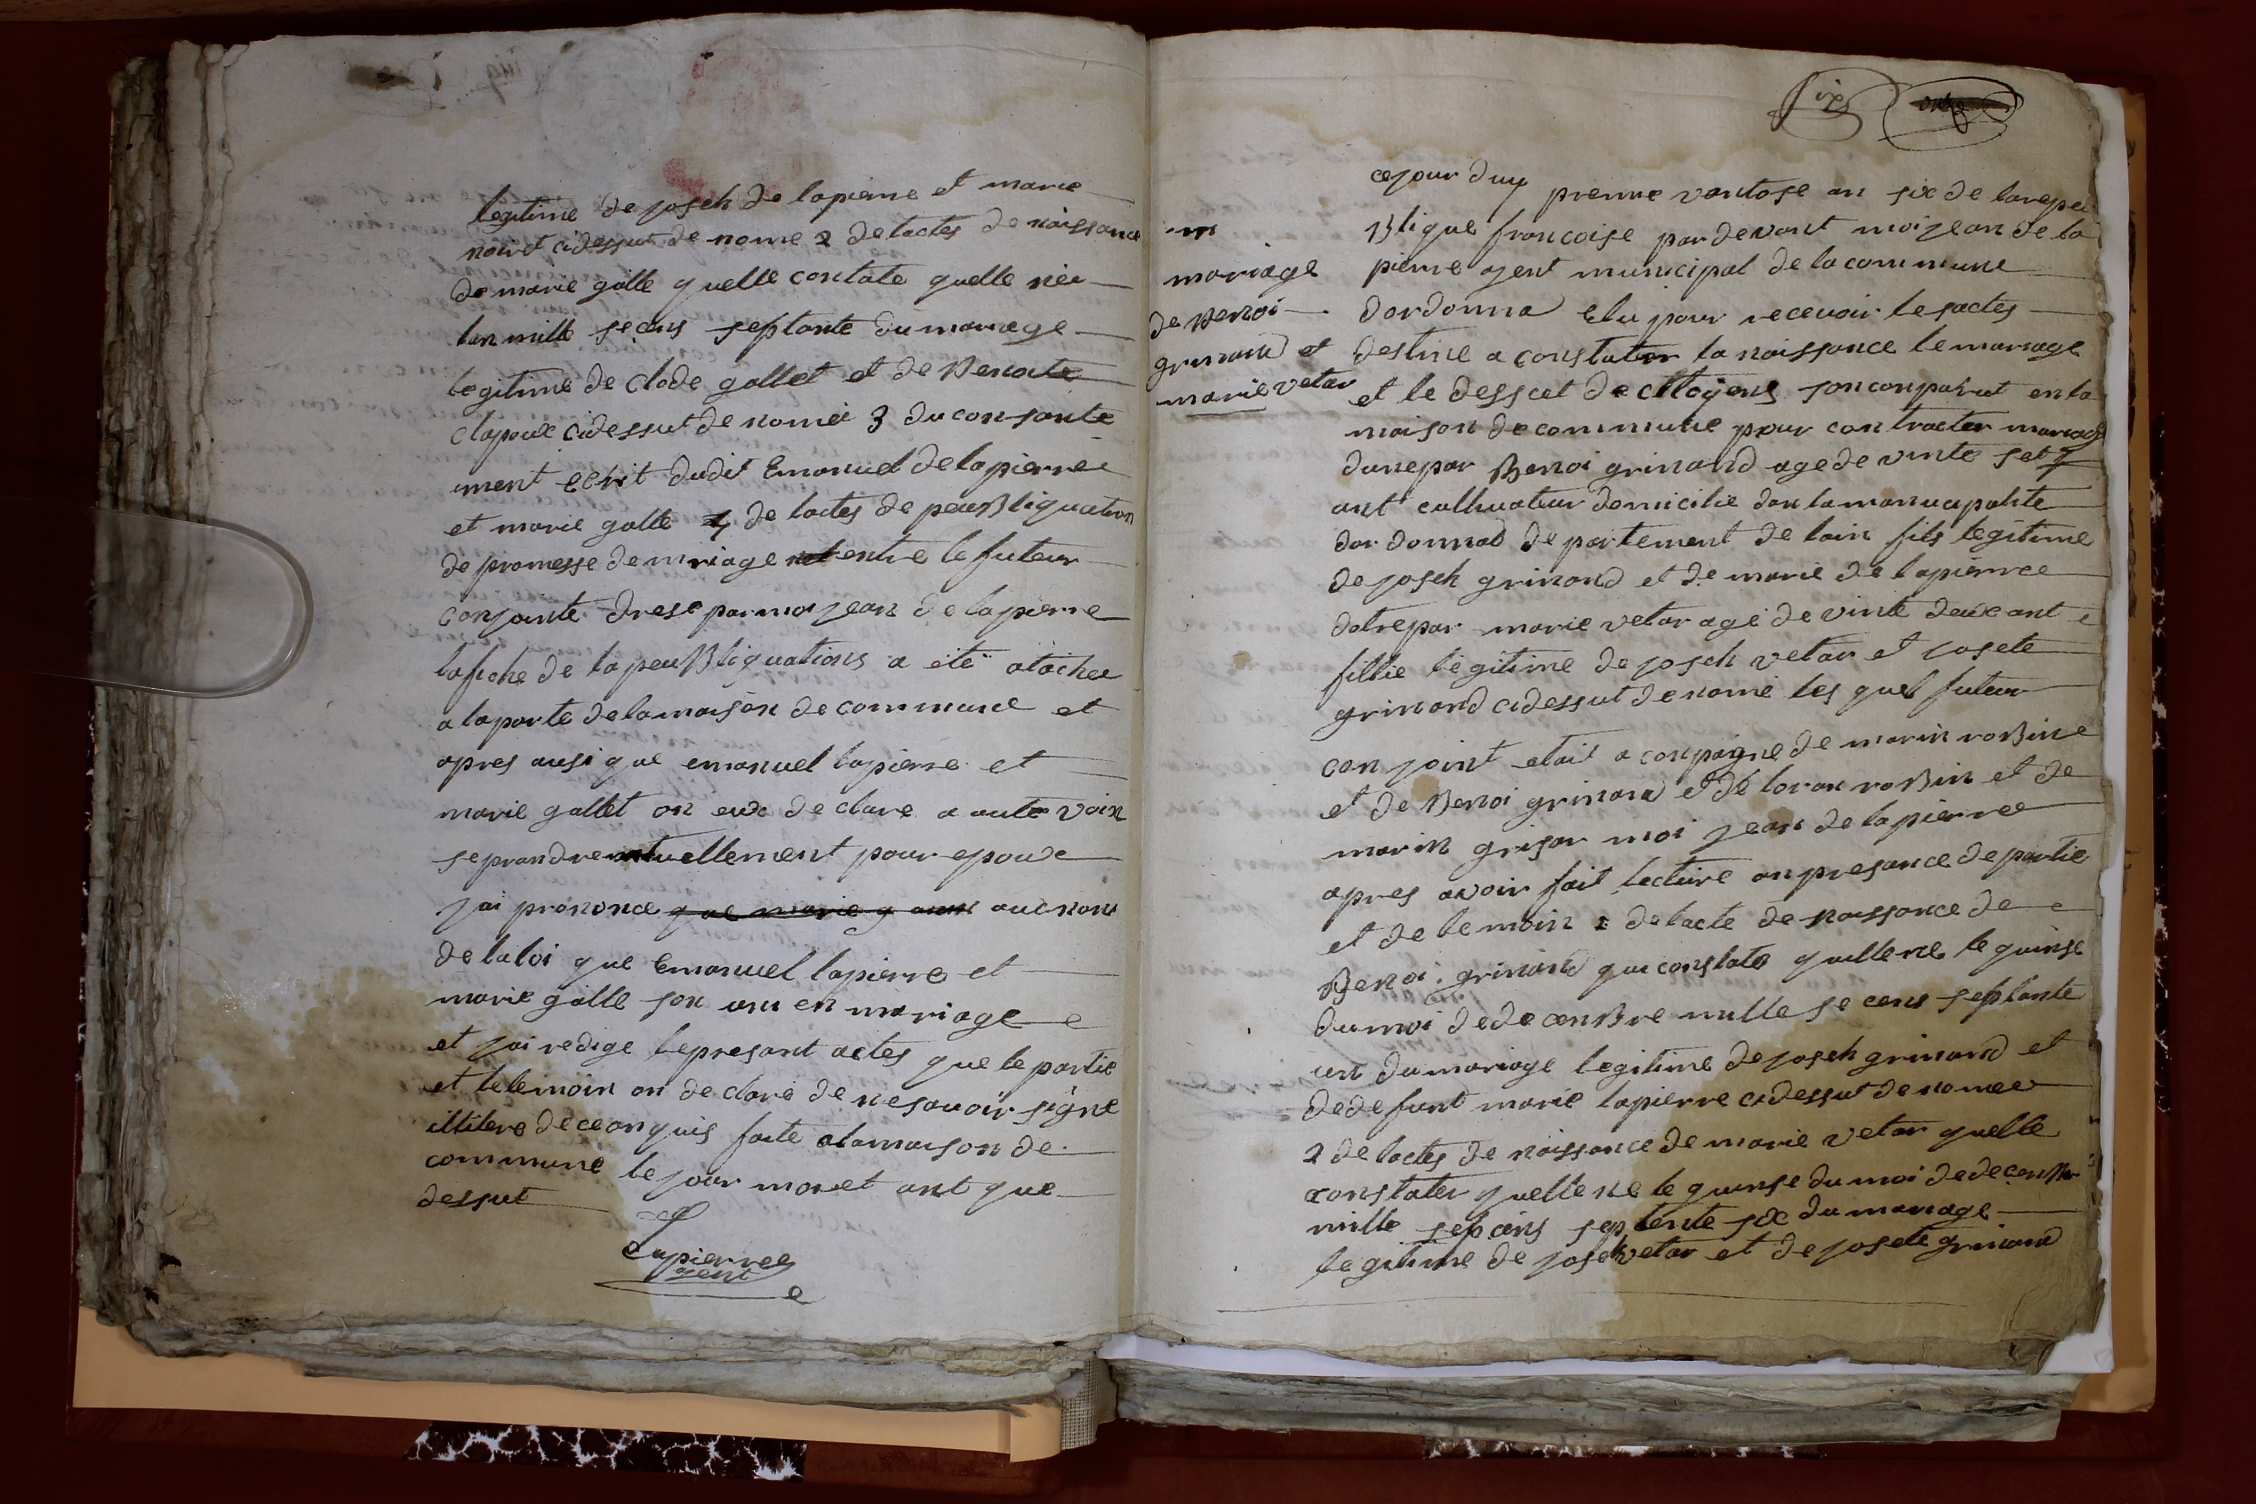 legitime de joseh de lapierre et marie
noiret cidessut de nome 2 de lactes de naissance
de marie galle quelle contate quelle née
lan mille seçans septante du mariage
legitime de clode gallet et de Benoite
clapoux cidessut de nomée 3 du consante
ment ecrit dudit Emanuel de lapierre
et marie galle 4 de lactes de peuBliquation
de promesse de mriage entre le futeur
conjointe drese par moi jean de lapierre
lafiche de la peuBliquations a été ataichee
a la porte de la maison de commune et
apres ausi que emanuel lapierre et
marie gallet on eux declare a aute voix
se prandre mutuellement pour epouxe
jai prononce que marie g au nom
de la loi que Emanuel lapierre et
marie galle son uni en mariage
et jai redige le presant actes que le partie
et le temoin on declaré de ne savoir signe
illitere de ce anquis faite a la maison de
commune le jour moi et ant que
dessut
Lapierre
agent
six
onze
mariage
de Benoi
grinand et
marie vetar
cejour duy premie vantose an six de larepeu
Blique francoise par devant moi jean de la
pierre agent municipal de la commune
dordonna elu pour recevoir les actes
destine a constater la naissance le mariage
et le desset de citoyens son conparut en la
maison de commune pour contracter mariage
dune par Benoi grinand age de vinte set
ant cultivateur domicilie dan la manucipalite
dordonnad departement de lain fils legitime
de joseh grinand et de marie de lapierre
dotre par marie vetar age de vinte deux ant
fillie legitime de joseh vetar et josete
grinand cidessut de nomé les quel futeur
conjoint etait aconpagne de marin roBin
et de Benoi grinand et de loran roBin et de
marin grisar moi jean de lapierre
apres avoir fait lecture an presance de partie
et de temoin 1 de lacte de naissance de
Benoi grinand qui constate quelle ne le quinse
du moi de decenBre mille se cens septante
un du mariage legitime de joseh grinand et
de defunt marie lapierre cidessut de nomee
2 de lactes de naissance de marie vetar quelle
constater quelle ne le quinse du moi de decenBr
mille sepcens septente six du mariage
legitime de joseh vetar et de josete grinand